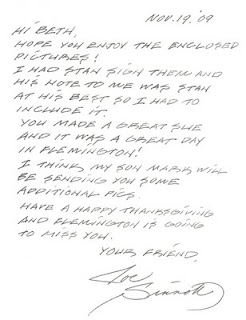 NOV. 19. '09
HI BETH,
HOPE YOU ENJOY THE ENCLOSED
PICTURES!
I HAD STAN SIGN THEM AND
HIS NOTE TO ME WAS STAN
AT HIS BEST SO I HAD TO
INCLUDE IT.
YOU MADE A GREAT SUE
AND IT WAS A GREAT DAY
IN FLEMINGTON!
I THINK MY SON MARK WILL
BE SENDING YOU SOME
ADDITIONAL PICS.
HAVE A HAPPY THANKSGIVING
AND FLEMINGTON IS GOING
TO MISS YOU.
YOUR FRIEND,
Joe
Sinnott